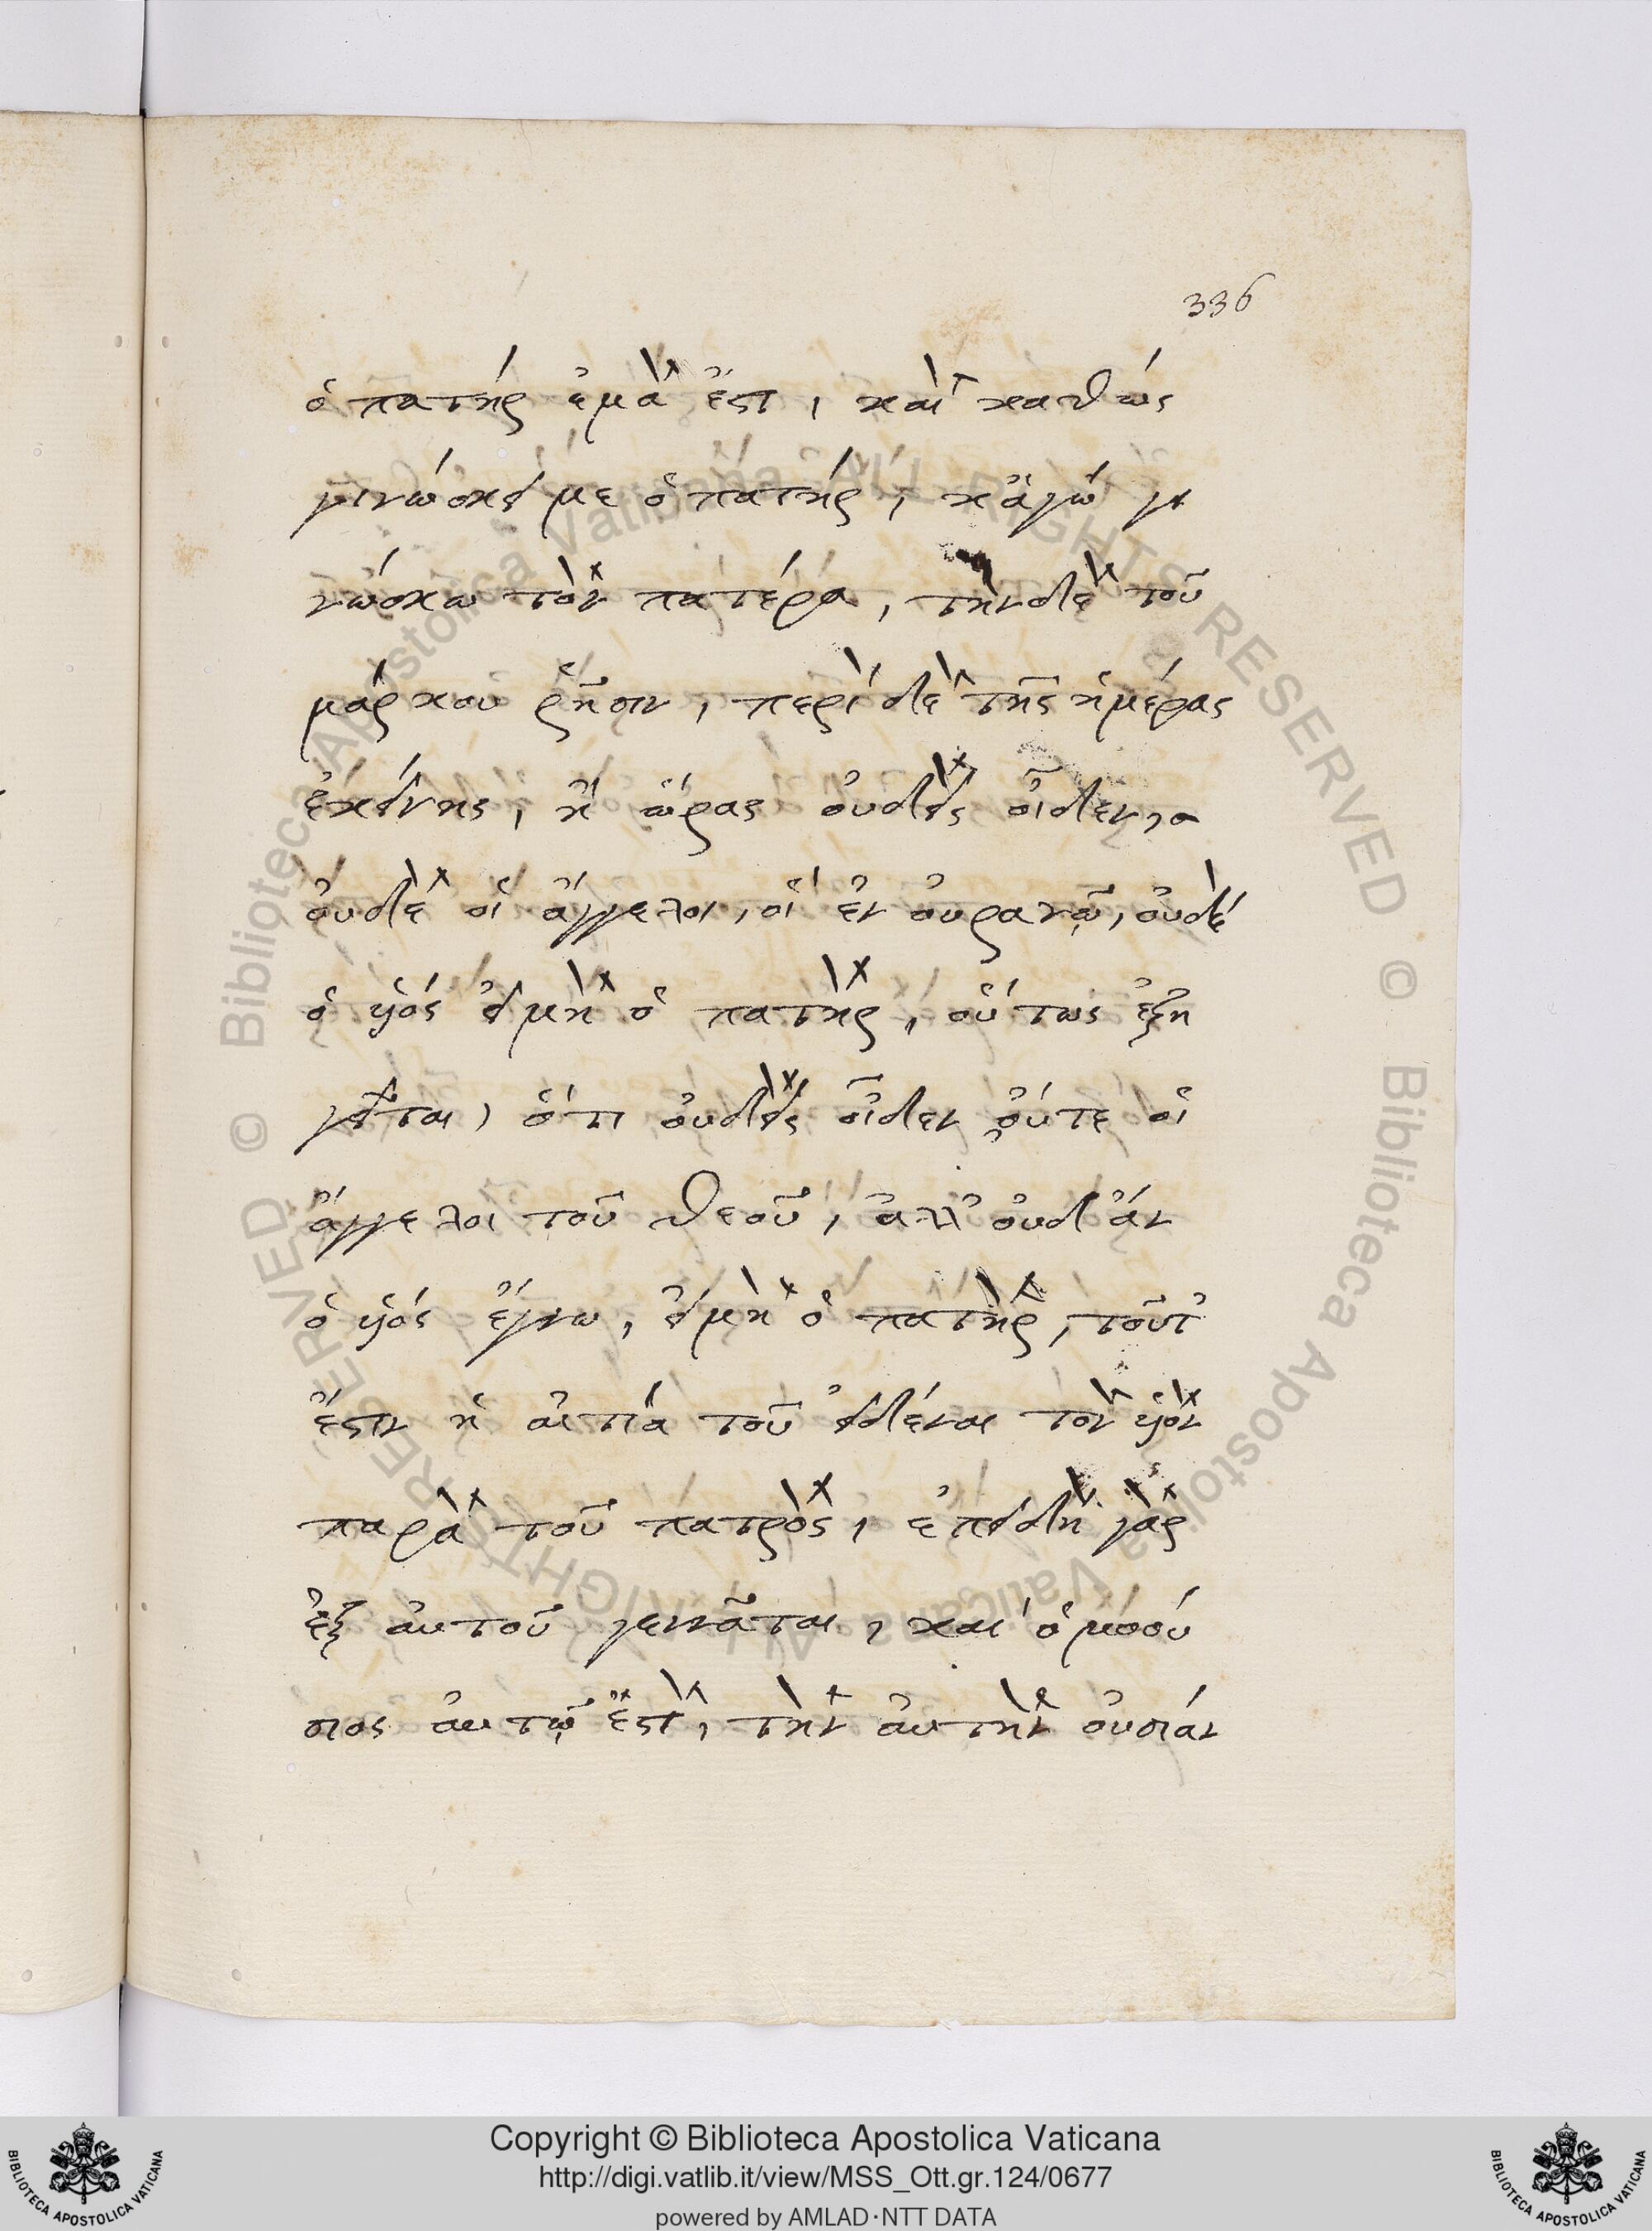 336
ὁ πατὴρ ἐμὰ ἔστι, καὶ καθώς
γινώσκει με ὁ πατήρ, κἀγώ γι
νώσκω τὸν πατέρα, τὴν δὲ τοῦ
μάρκου ῥῆσιν, περὶ δὲ τῆς ἡμέρας
ἐκείνης, ἢ ὥρας οὐδεὶς οἶδεν,
οὐδὲ οἱ ἄγγελοι, οἱ ἐν οὐρανῷ, οὐδὲ
ὁ υἱός εἰ μὴ ὁ πατὴρ, οὕτως ἐξη
γεῖται, ὅτι οὐδεὶς οἶδεν οὔτε οἱ
ἄγγελοι τοῦ θεοῦ, ἀλλ' οὐδ' ἄν
ὁ υἱός ἔγνω, εἰ μὴ ὁ πατὴρ, τοῦτ'
ἔστιν ἡ αἰτία τοῦ εἰδέναι τὸν υἱὸν
παρὰ τοῦ πατρὸς, ἐπειδὴ γὰρ
ἐξ αὐτοῦ γεννᾶται, καὶ ὁμοού
σιος αὐτῷ ἔστὶ, τὴν αὐτὴν οὐσίαν
© Biblioteca Apostolica Vaticana ALL RIGHTS RESERVED
© Biblioteca Apostolica Vaticana ALL RIGHTS RESERVED
Copyright © Biblioteca Apostolica Vaticana
http://digi.vatlib.it/view/MSS_Ott.gr.124/0677
powered by AMLAD·NTT DATA
BIBLIOTECA APOSTOLICA VATICANA
BIBLIOTECA APOSTOLICA VATICANA